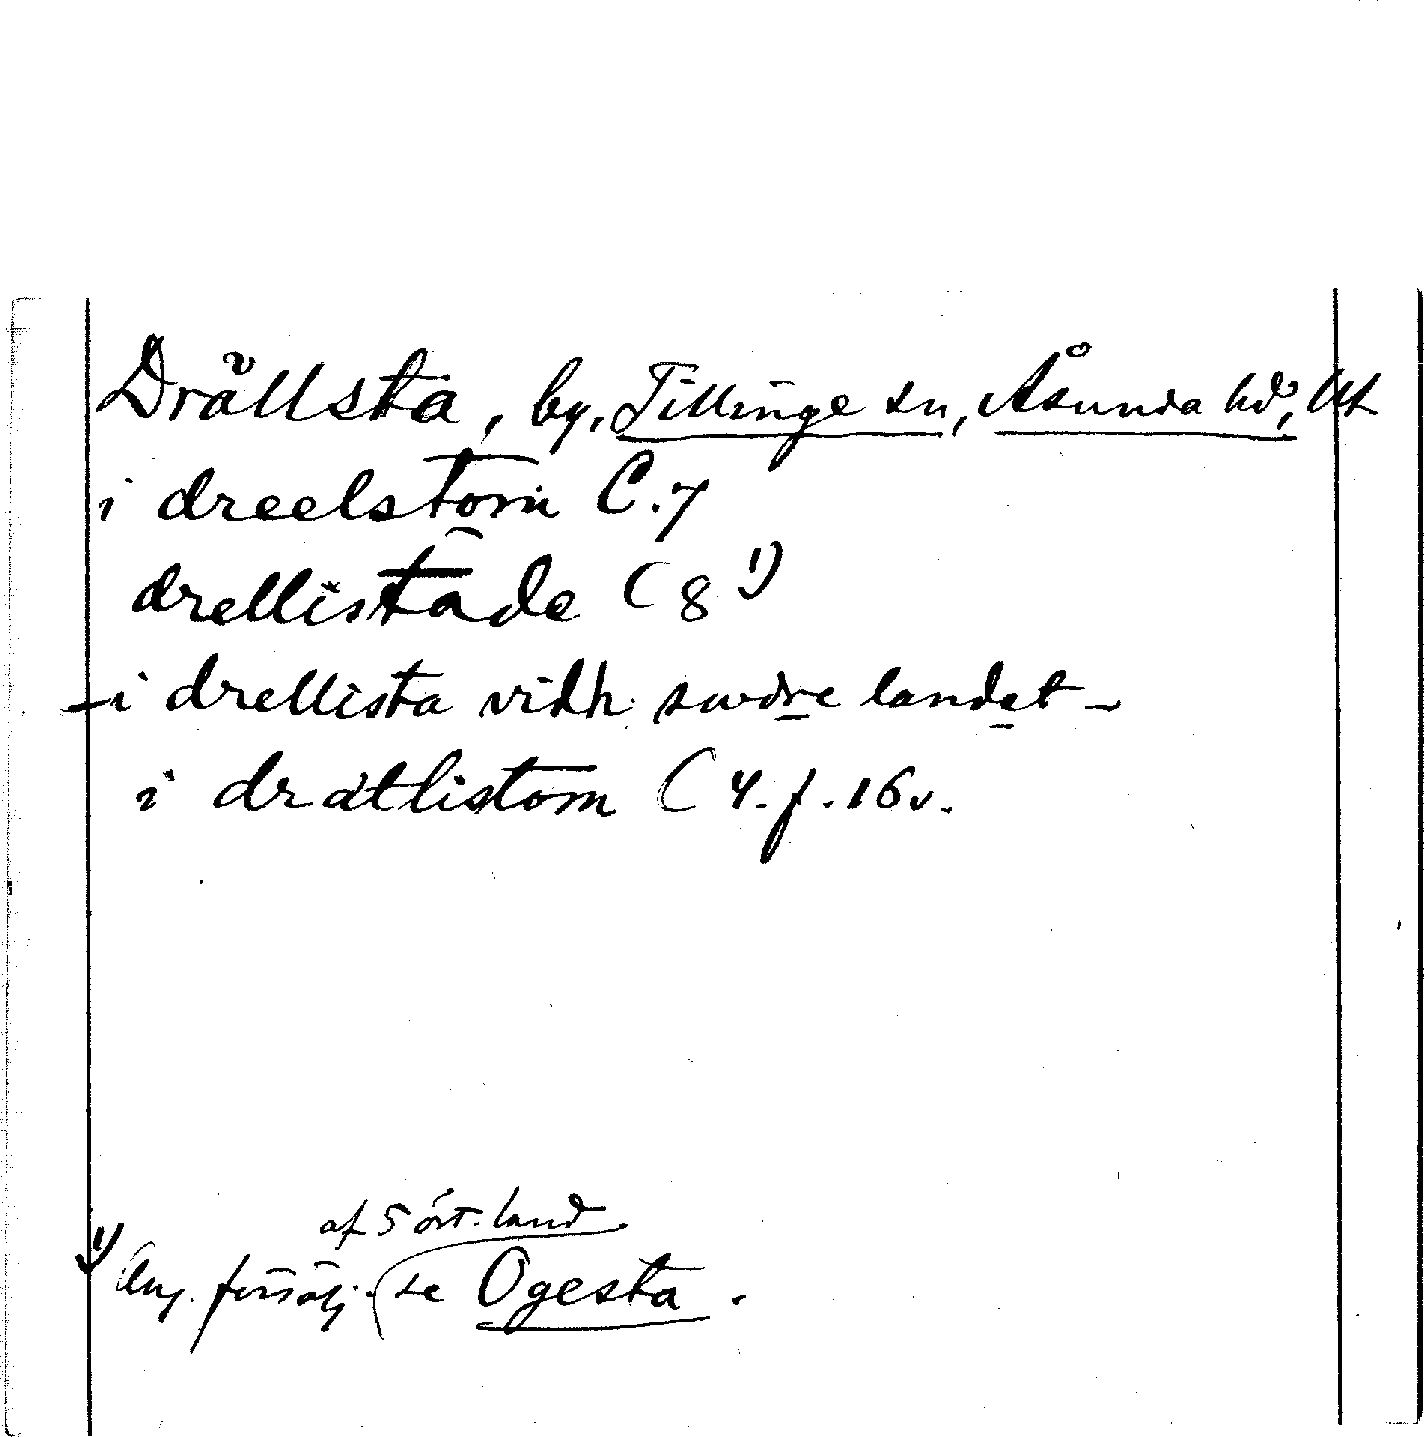 Drällsta, by, Tillinge sn, Åsunda hd, Ut
i dreelstom C. 7
drellistade C 8 1)
– i drellista vidh swdre landet –
i drätlistom C 4. f. 16 v.
af 5 ört. land
1) Ang. försälj. se Ögesta.